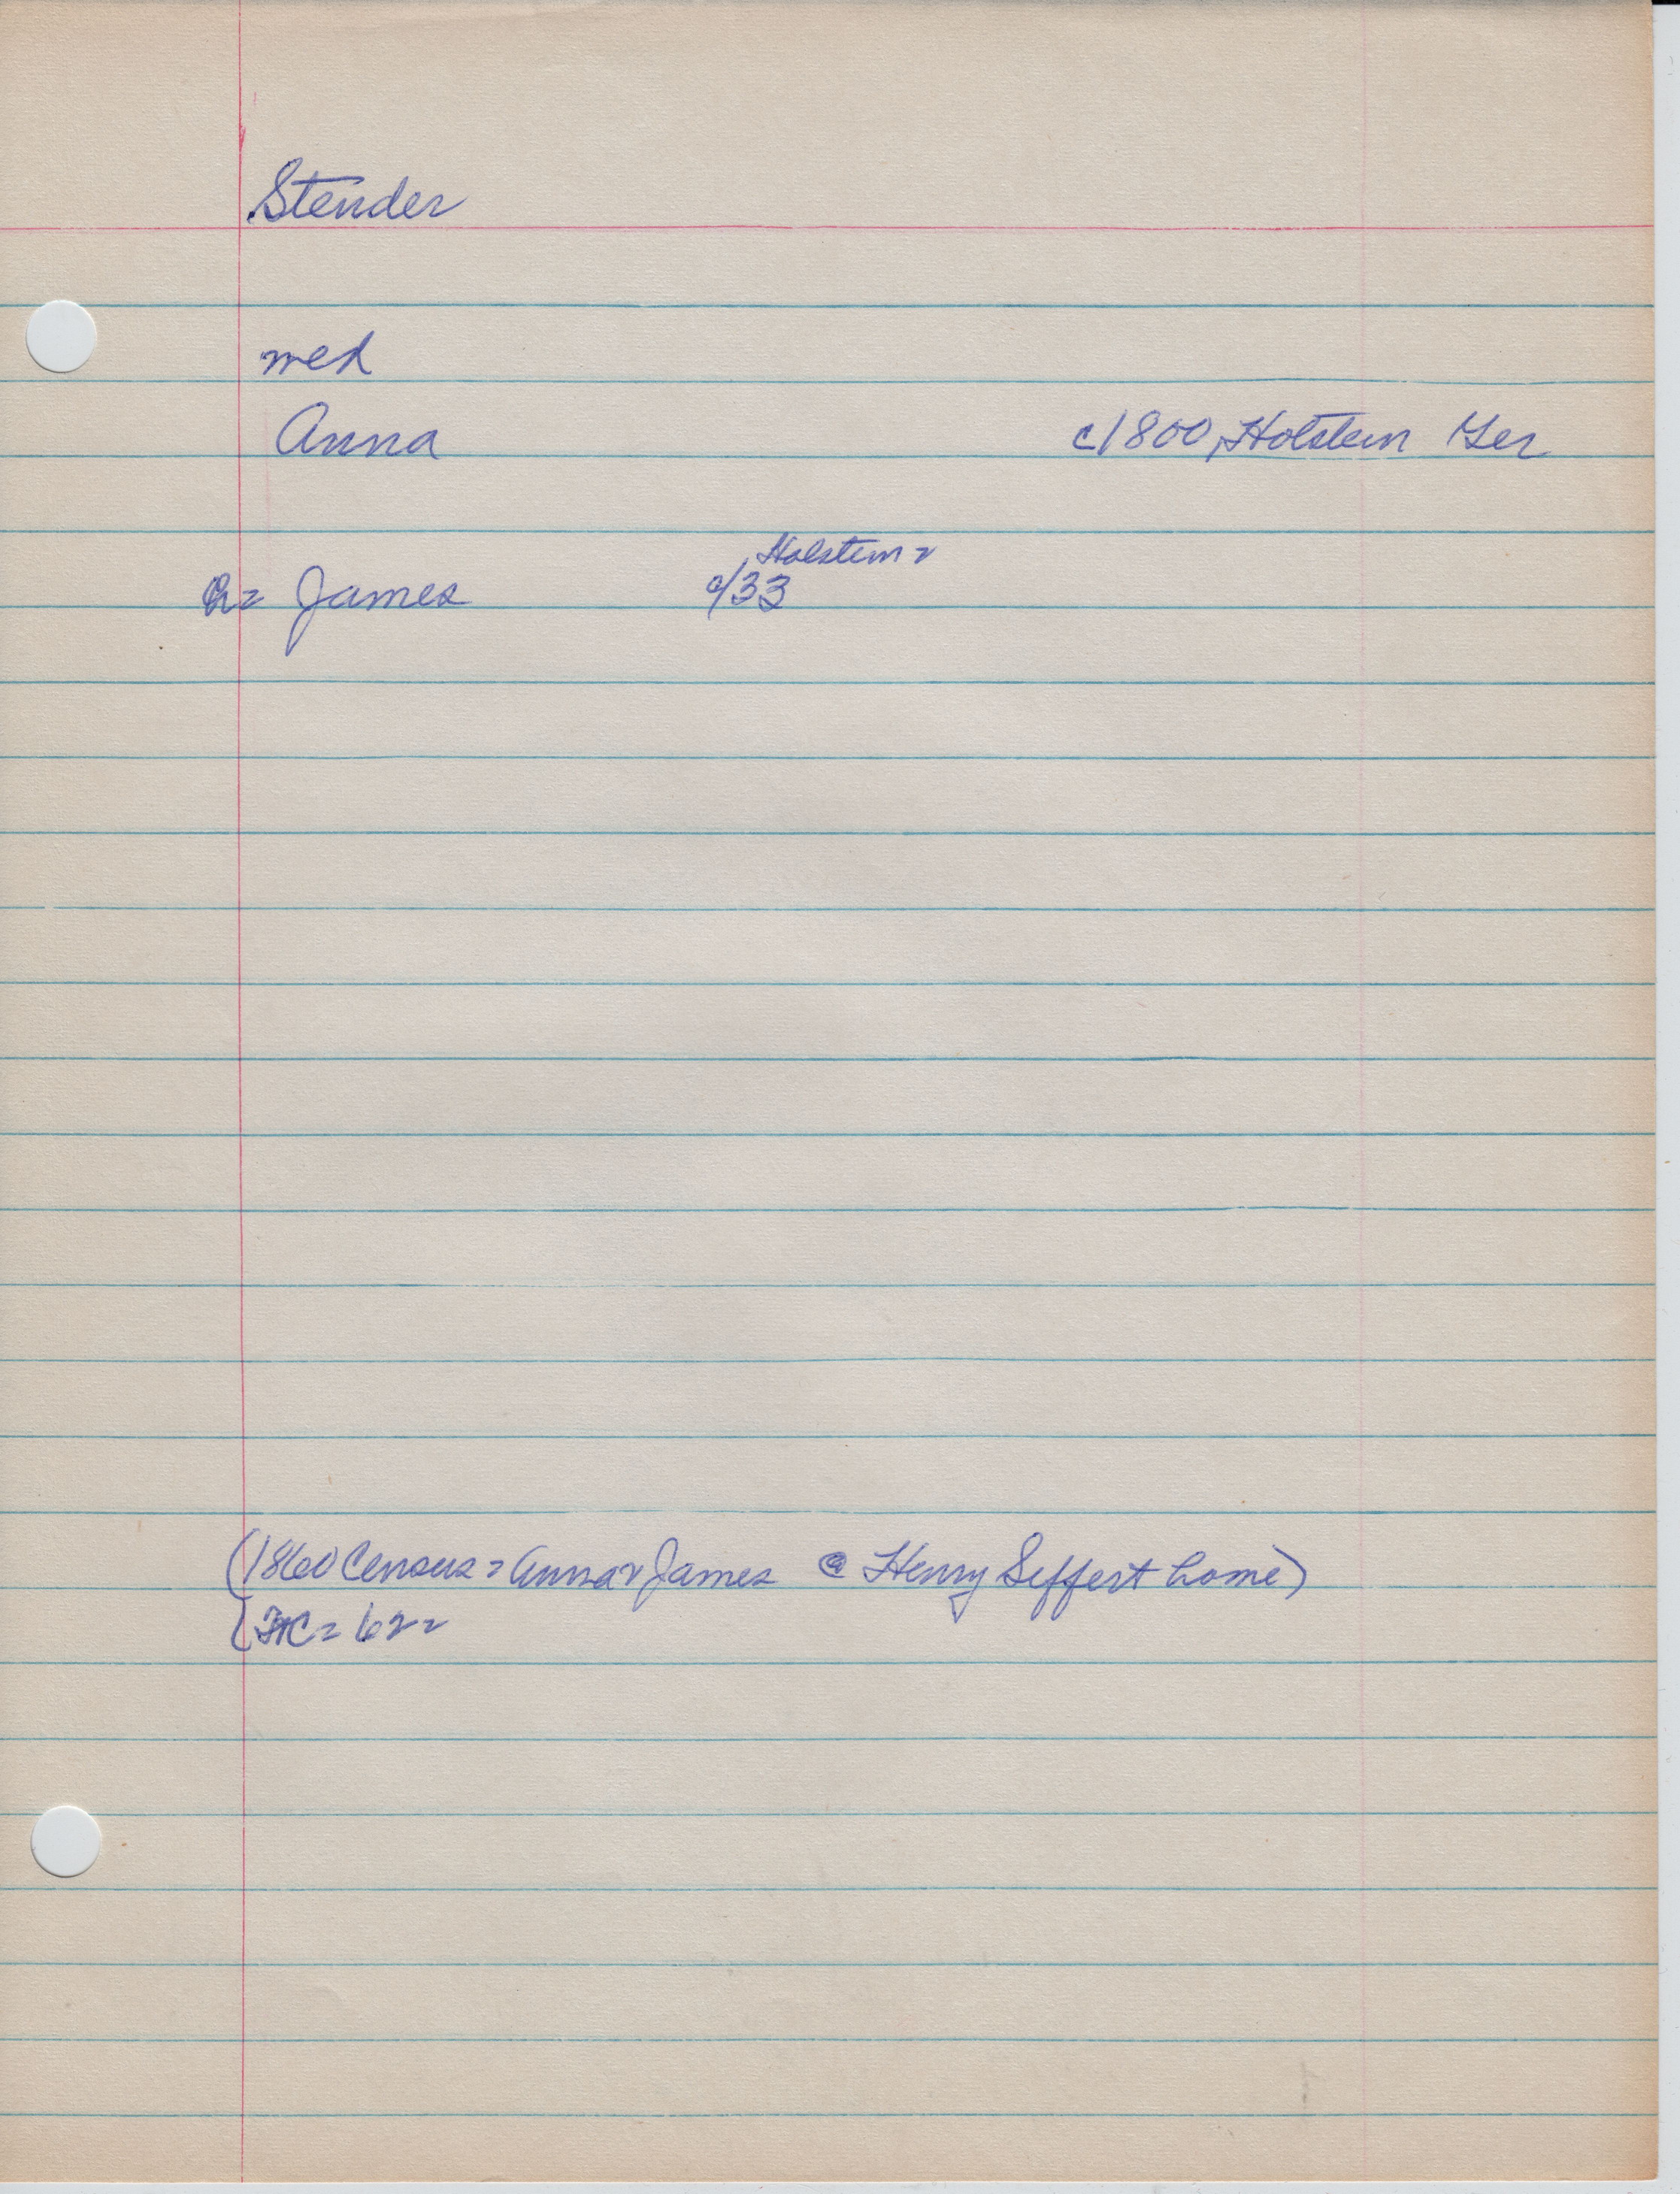 Stender
med
Anna c1800, Holstein Ger
Holstein =
James c/33
(1860 Census = Anna & James @ Henry Seffert home)